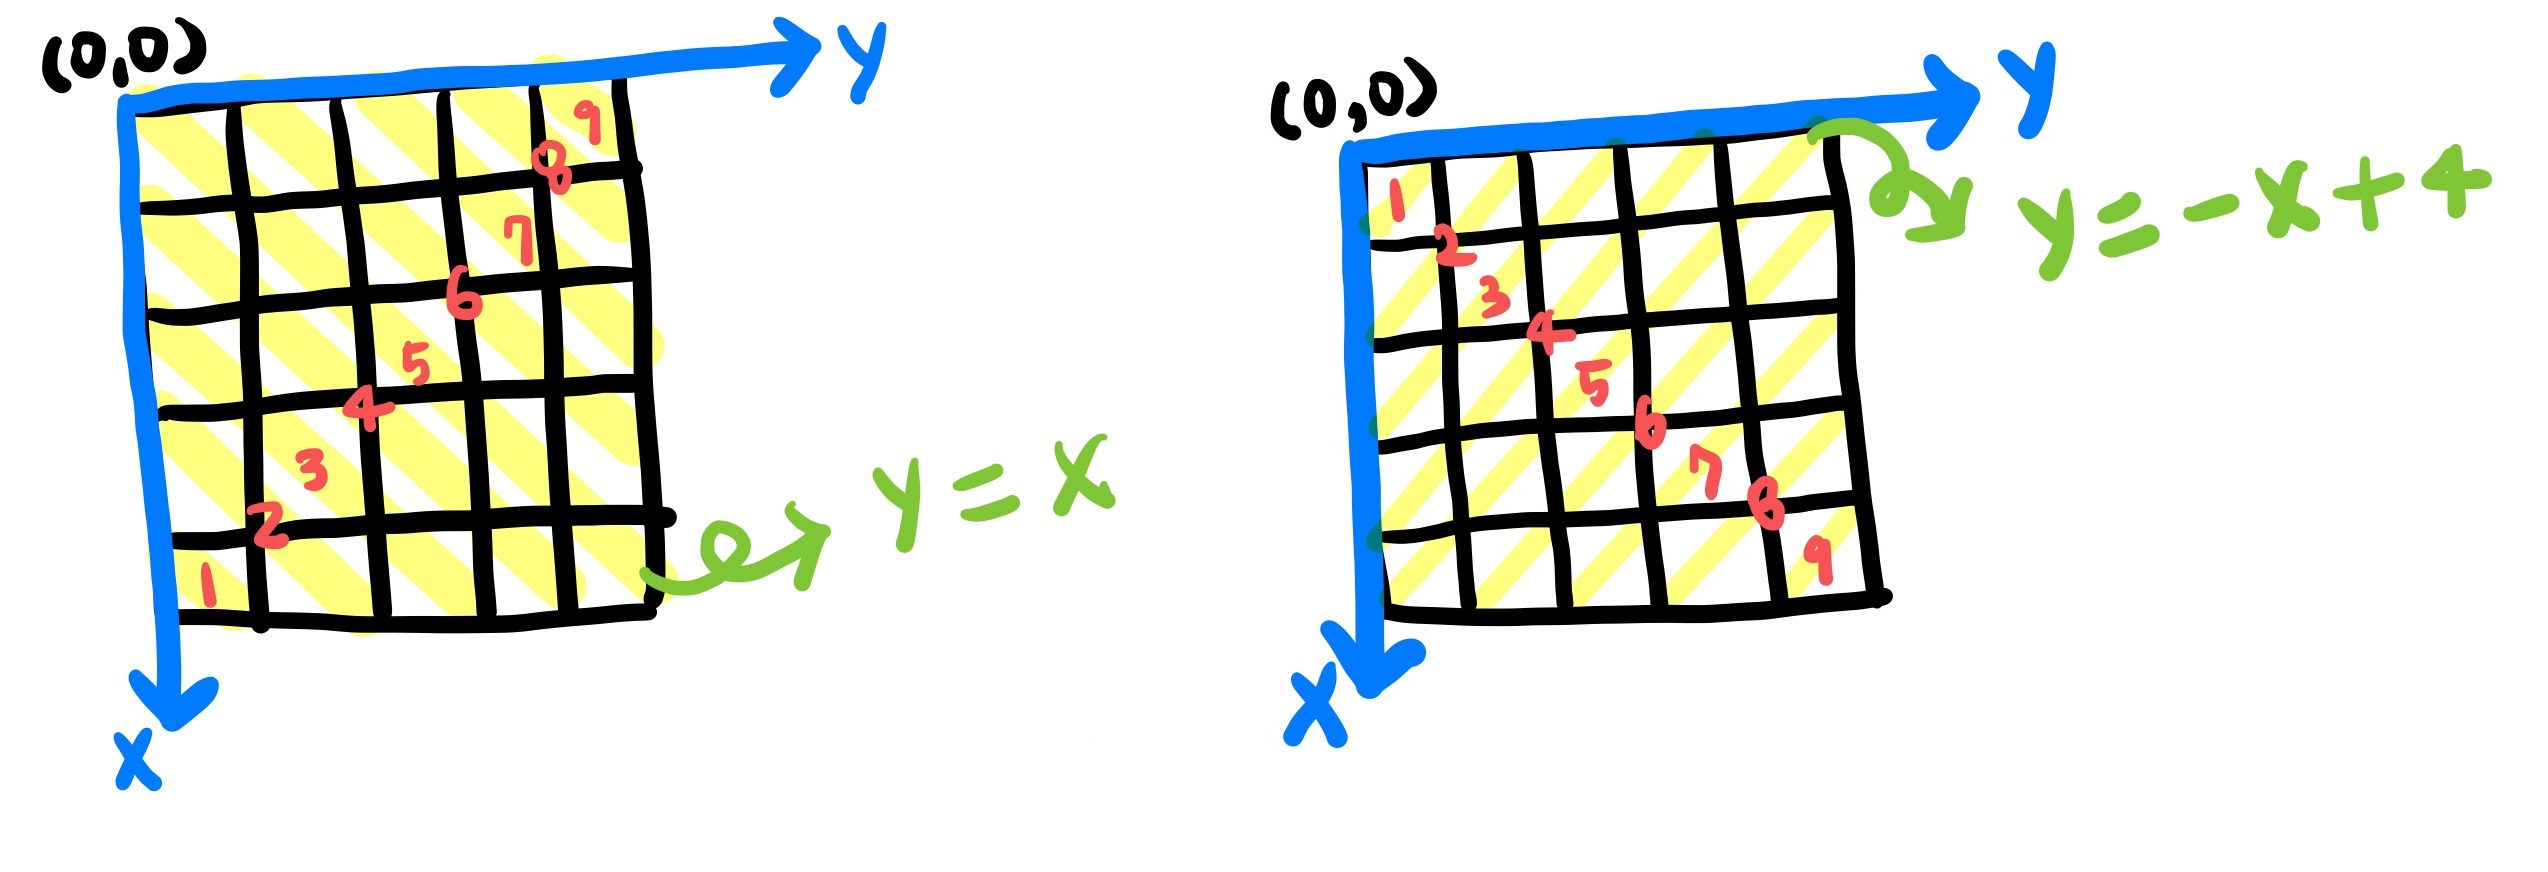 (0,0)
Y
9
8
7
6
5
4
3
2
1
y = x
X
(0,0)
Y
y = -x + 4
1
2
3
4
5
6
7
8
9
X